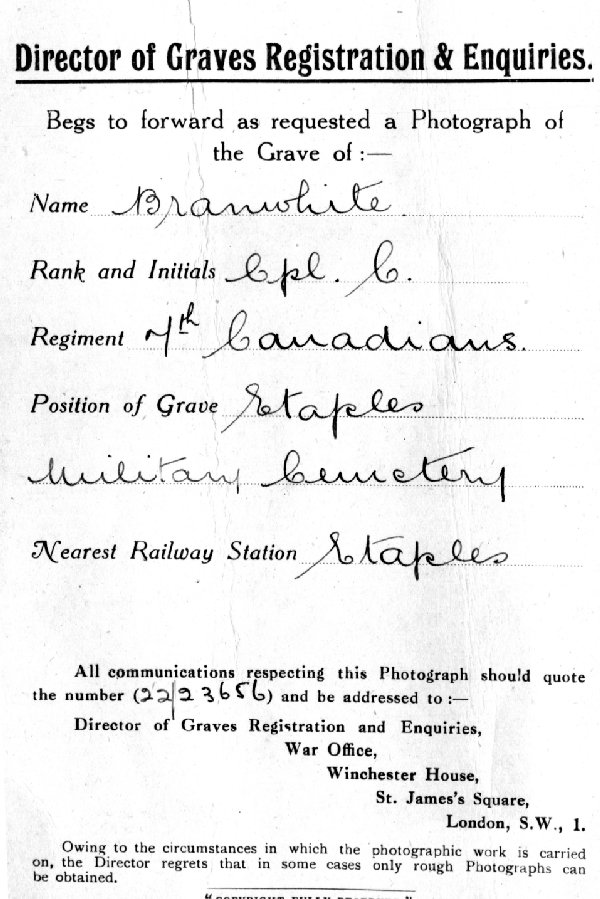 Director of Graves Registration & Enquiries.
Begs to forward as requested a Photograph of
the Grave of :—
Name Branwhite
Rank and Initials Cpl. C.
Regiment 7th Canadians.
Position of Grave Etaples
Military Cemetery
Nearest Railway Station Etaples
All communications respecting this Photograph should quote
the number (22/23656) and be addressed to :—
Director of Graves Registration and Enquiries,
War Office,
Winchester House,
St. James's Square,
London, S.W., 1.
Owing to the circumstances in which the photographic work is carried
on, the Director regrets that in some cases only rough Photographs can
be obtained.